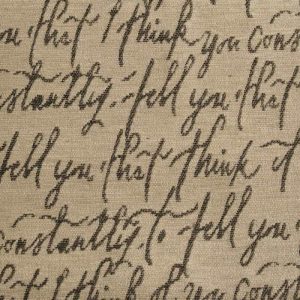 you that I think you cons
stantly. tell you that
tell you that think it
constantly. to tell you
t I think of you cons